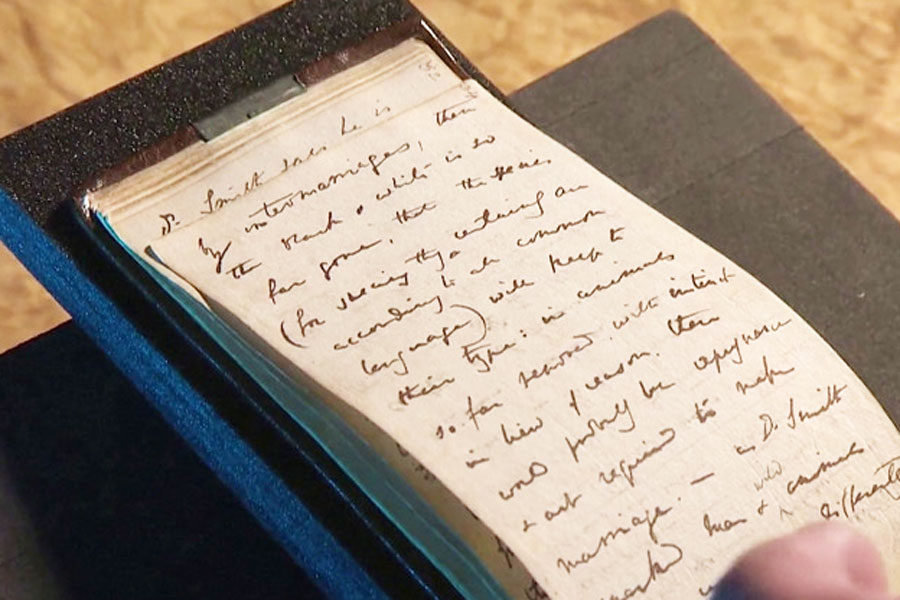 Dr. Smith says he is
by intermarriages, then
the black & white is so
far gone, that the species
(for species they certainly are
according to all common
language) will keep to
their type: in animals
so far removed with instinct
in lieu of reason, there
would probably be repugnance
& art required to make
marriage. — as Dr. Smith
remarked man & wild animals
differently